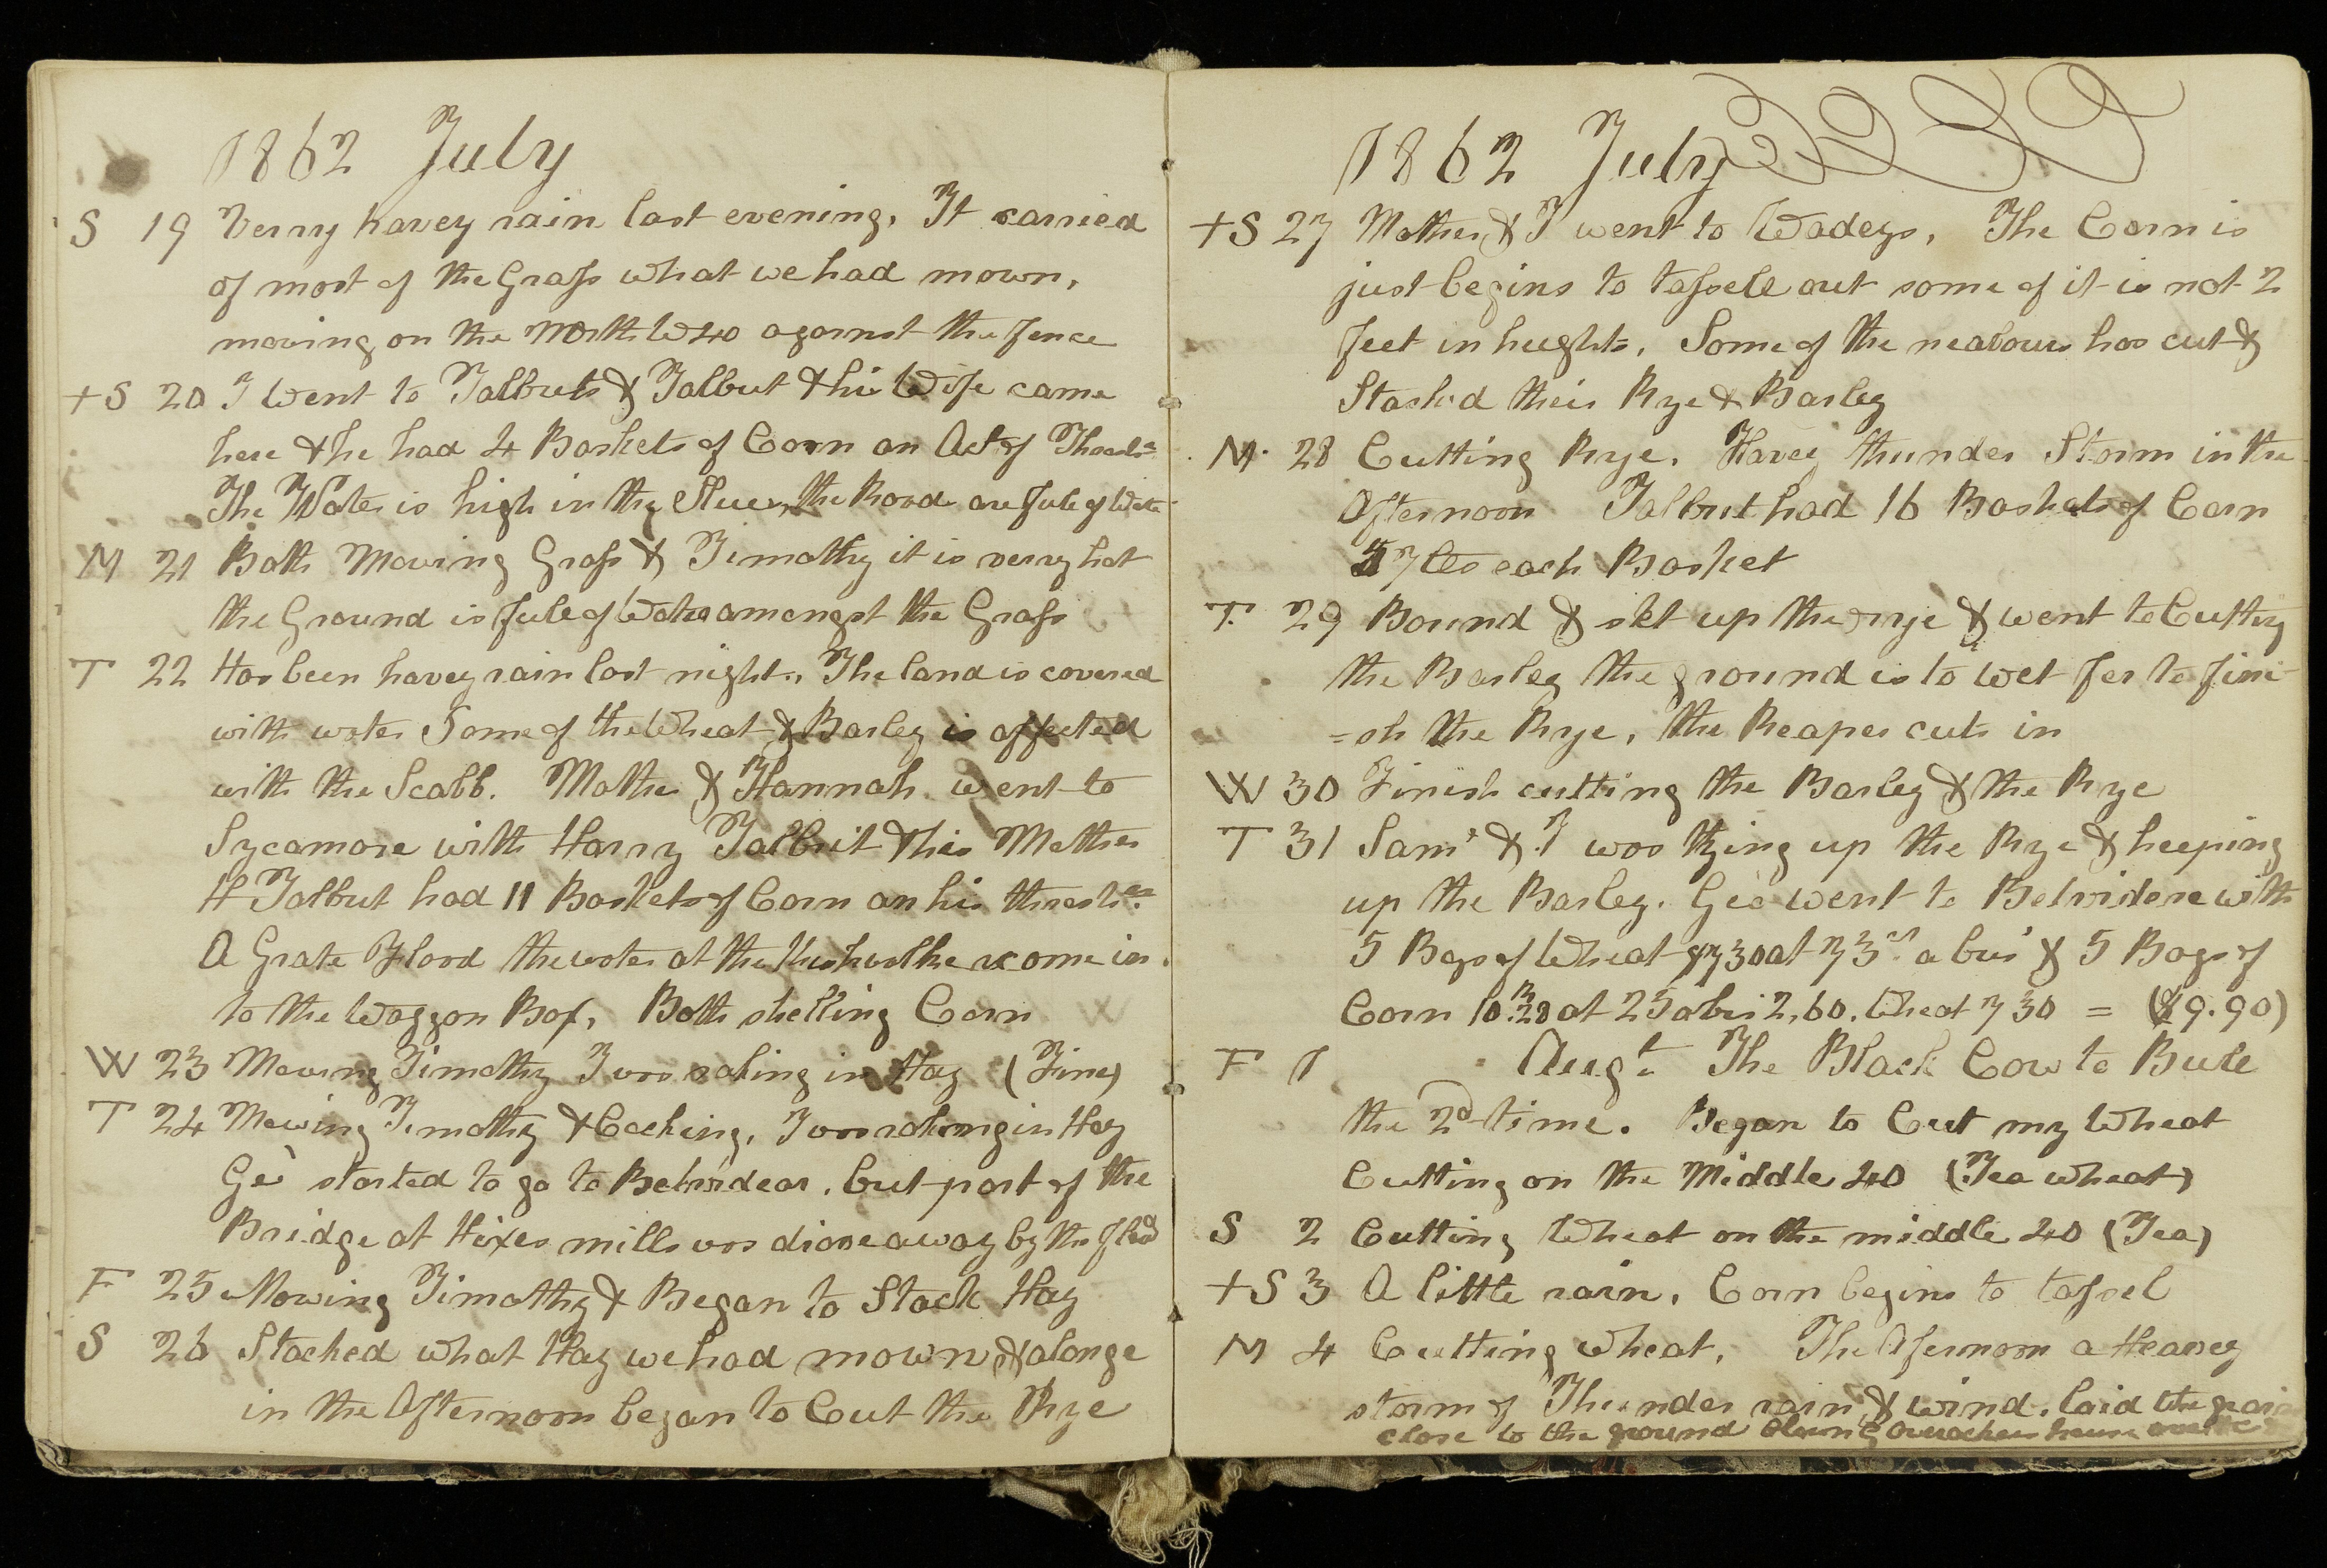 1862 July
S 19 Verry havey rain last evening, It carried
of most of the Grass what we had mown,
mowing on the North W 40 against the fence
+S 20 I Went to Talbuts & Talbut & his Wife came
here & he had 4 Baskets of Corn on Act of Thrash=
The Water is high in the Slues, the Road are fule of Wate
M 21 Both Mowing Grass & Timothy it is verry hot
the Ground is fule of Water amongst the Grass
T 22 Has been havey rain last night. The land is covered
with water Some of the Wheat & Barley is affected
with the Scabb. Mother & Hannah went to
Sycamore with Harry Talbut & his Mother
H Talbut had 11 Baskets of Corn on his thrash=
A Grate Flood the water at the come in
to the Waggon Box, Both shelling Corn
W 23 Mowing Timothy I was raking in Hay (Fine)
T 24 Mowing Timothy & Cocking, I was raking in Hay
Geo started to go to Belvidear, but part of the
Bridge at Hixes mills was drove away by the flod
F 25 Mowing Timothy & Began to Stack Hay
S 26 Stacked what Hay we had mown & alonge
in the Afternoon began to Cut the Rye
1862 July
+S 27 Mother & I went to Wadeys, The Corn is
just begins to tassell out some of it is not 2
feet in heught, Some of the neabours has cut &
Stackd their Rye & Barley
M 28 Cutting Rye, Havey thunder Storm in the
Afternoon Talbut had 16 Baskets of Corn
37 lbs each Basket
T 29 Bound & set up the rye & went to Cutting
the Barley the ground is to wet for to fini-
=sh the Rye, the Reaper cuts in
W 30 Finish cutting the Barley & the Rye
T 31 Saml & I was tying up the Rye & heeping
up the Barley. Geo went to Belvidere with
5 Bags of Wheat $7,30 at 73cts a bus & 5 Bags of
Corn 10.28 at 25 a bus 2,60. Wheat 7 30 = ($9.90)
F 1 Augt The Black Cow to Bull
the 2d time. Began to Cut my Wheat
Cutting on the Middle 40 (Tea wheat)
S 2 Cutting Wheat on the middle 40 (Tea)
+S 3 A little rain, Corn begins to tassel
M 4 Cutting wheat, The Afernoon a Heavey
storm of Thunder rain & wind, laid the grain
close to the ground house